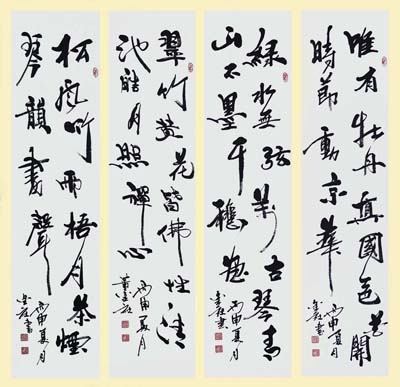 唯有牡丹真國色花開
時節動京華
丙申夏月
綠水無弦萬古琴青
山不墨千穐畫
丙申夏月
翠竹黃花皆佛性清
池皓月照禪心
丙申夏月
松風竹雨梧月茶煙
琴韻書聲
丙申夏月